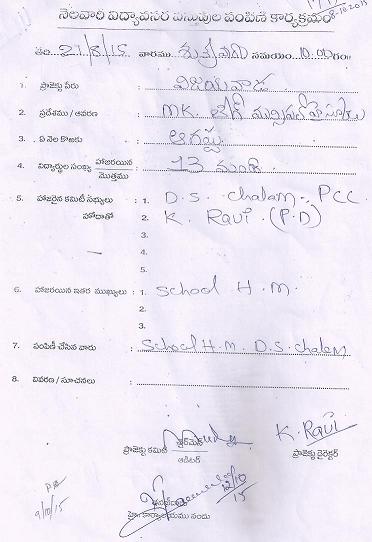 నెలవారి విద్యావసర వస్తువుల పంపిణి కార్యక్రమం
8-10-2015
తేది. 21/8/15 వారము. శుక్రవారం సమయం 10.00గం
1. ప్రాజెక్టు పేరు : విజయవాడ
2. ప్రదేశము / ఆవరణ : MK. బేగ్ మున్సిపల్ హైస్కూలు
3. ఏ నెల కొఱకు : ఆగష్టు
4. విద్యార్థుల సంఖ్య హాజరయిన/మొత్తము : 13 మంది
5. హాజరైన కమిటీ సభ్యులు హోదాతో : 1. D.S. chalam. PCC.
2. K. Ravi. (P.D)
3.
4.
5.
6. హాజరయిన ఇతర ముఖ్యులు : 1. School H.M.
2.
3.
7. పంపిణీ చేసిన వారు : School H.M. D.S. chalam
8. వివరణ / సూచనలు :
K. Ravi
ప్రాజెక్టు కమిటీ ఛైర్మెన్
ఆడిటర్
ప్రాజెక్టు డైరెక్టర్
12/10/15
9/10/15
హై. కార్యాలయము నందు